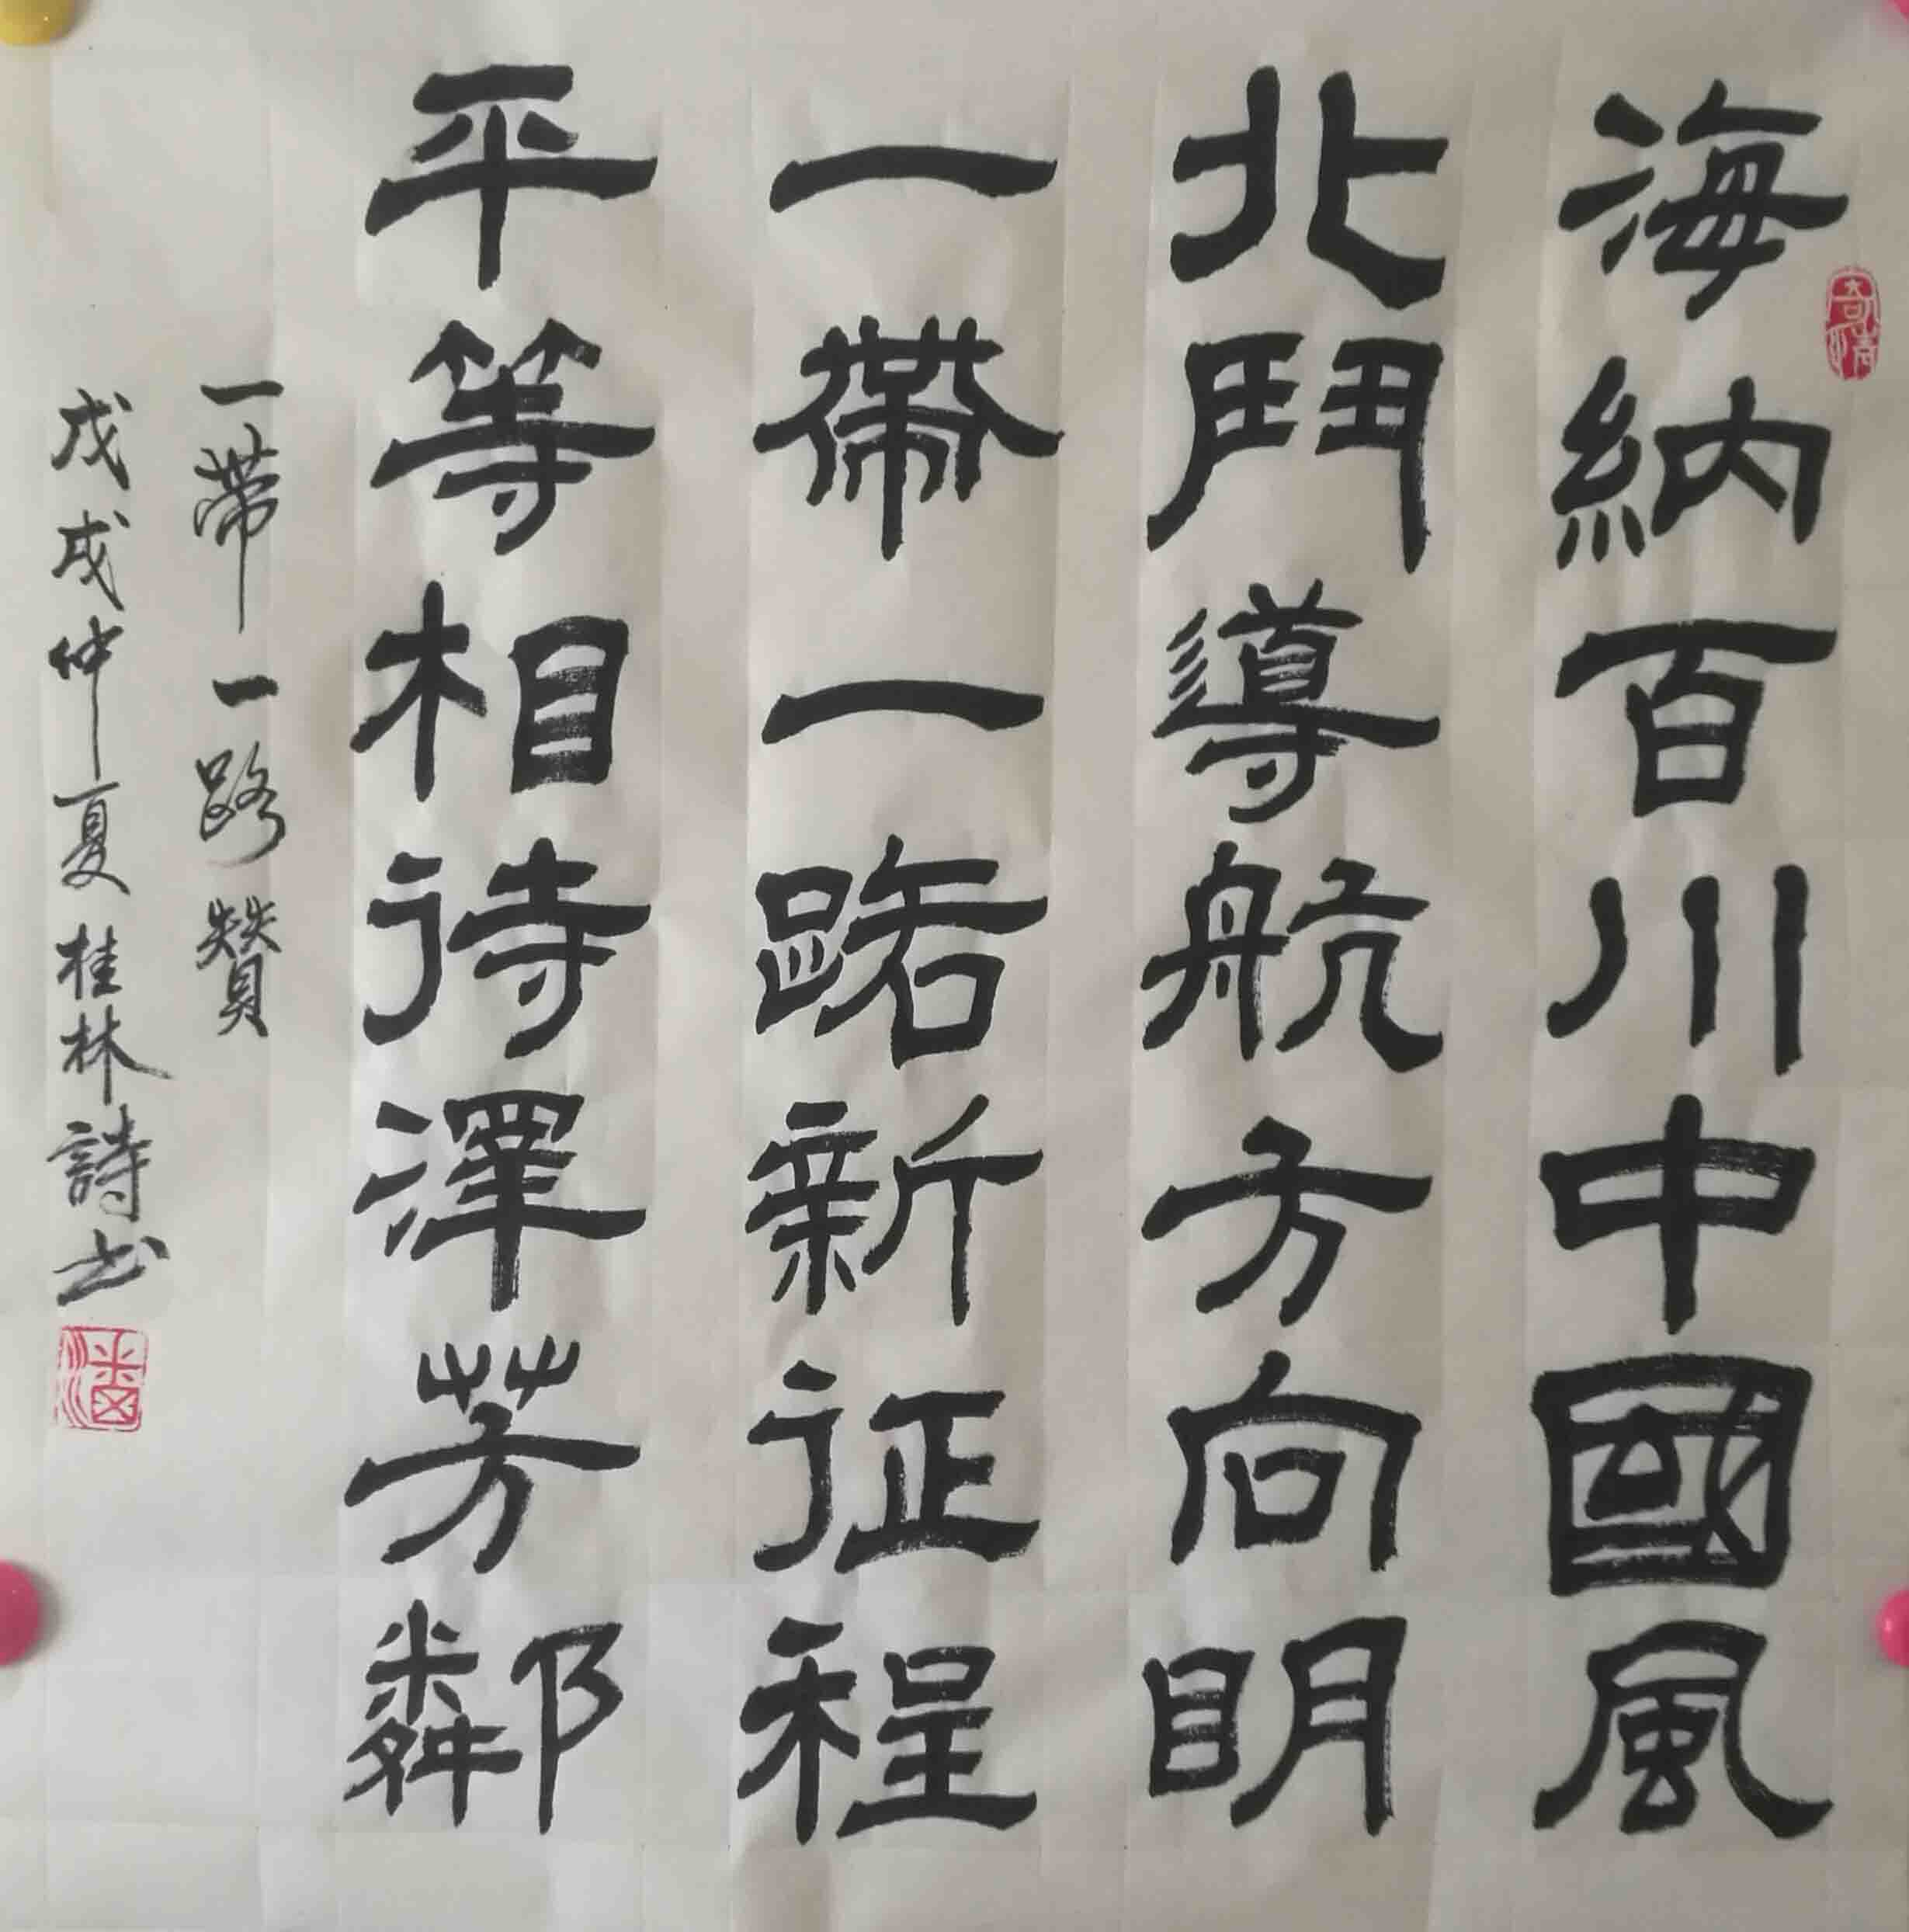 海納百川中國風
北鬥導航方向明
一帶一路新征程
平等相待澤芳鄰
一带一路赞
戊戌仲夏桂林詩书
潘